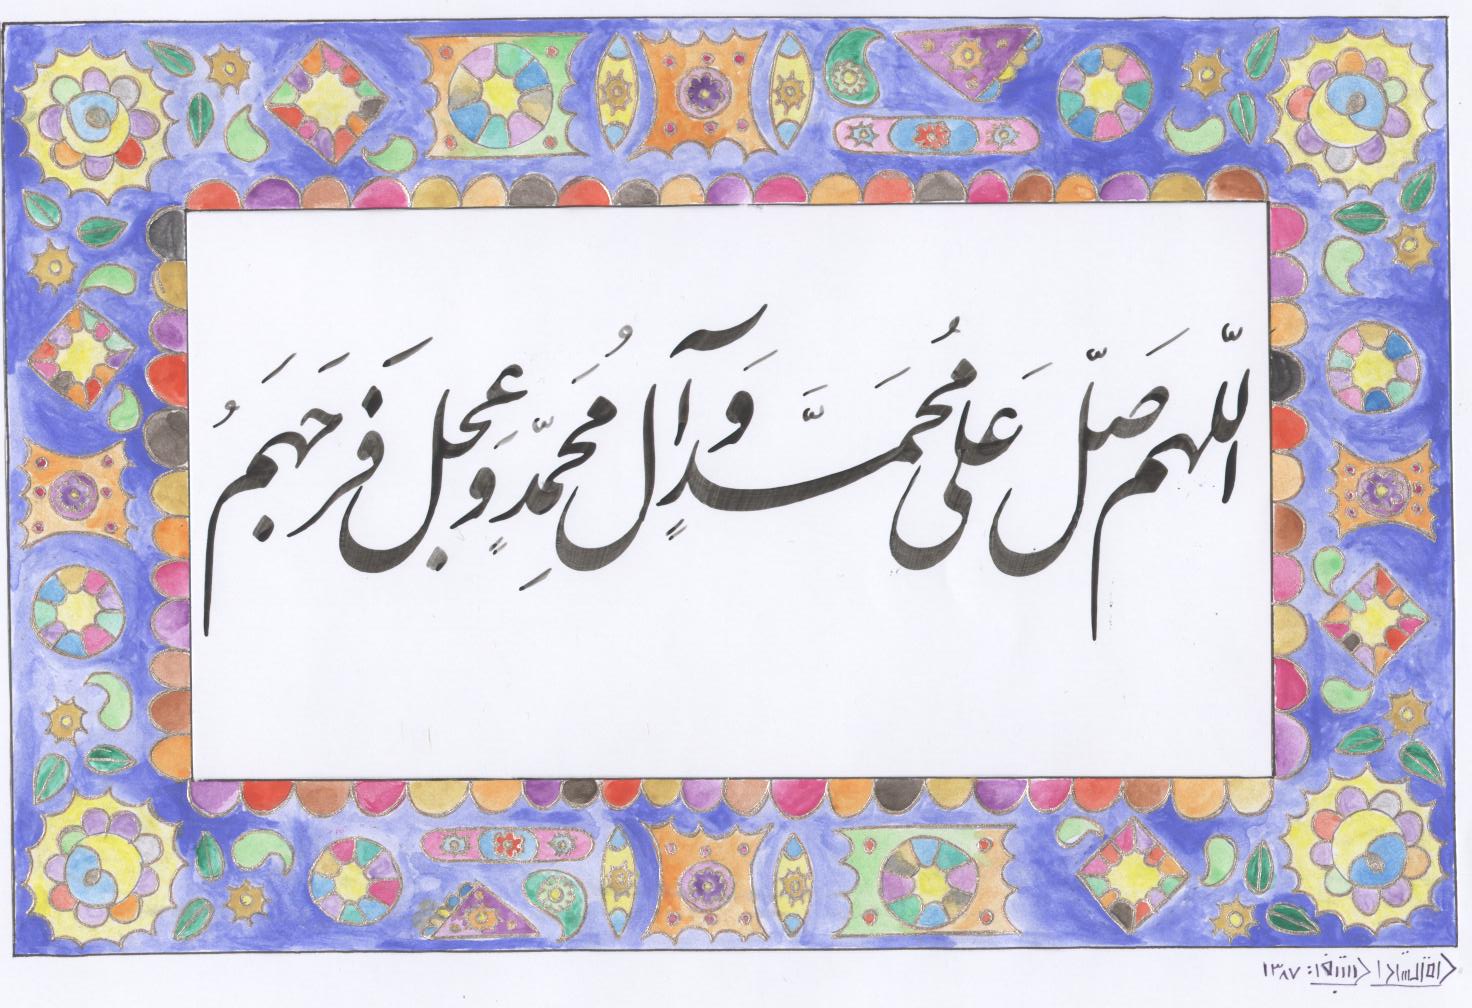 اللّهم صَلّ عَلی مُحَمَّدٍ وَ آلِ مُحَمّدٍ وَ عَجل فَرَجَهَمُ
۱۳۸۷